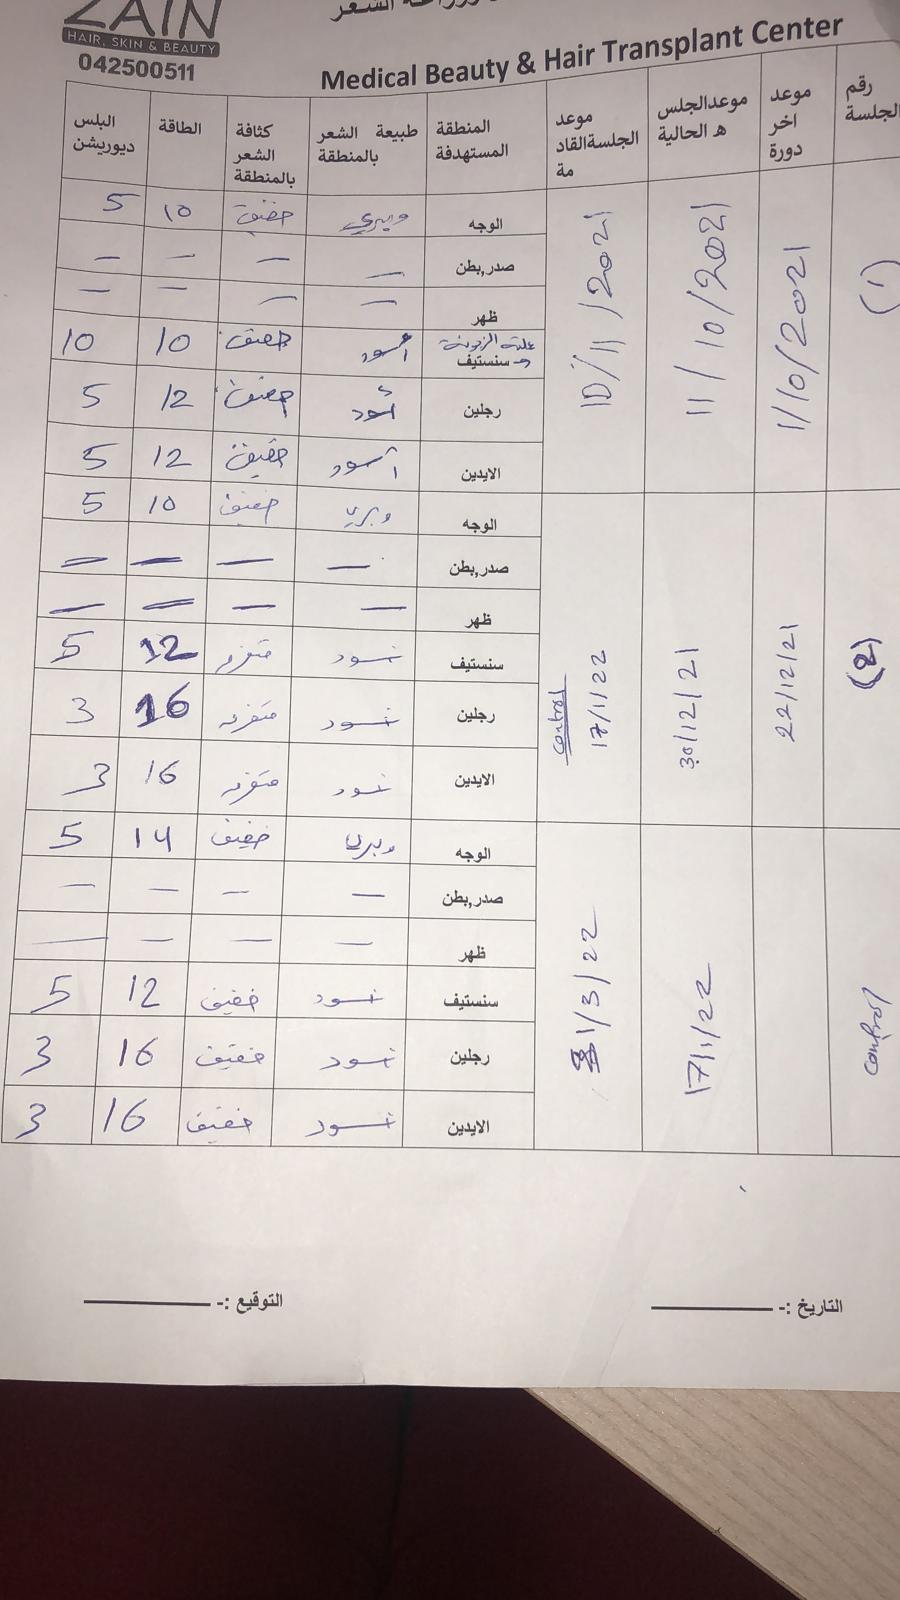 ZAIN
HAIR, SKIN & BEAUTY
042500511
Medical Beauty & Hair Transplant Center
رقم الجلسة | موعد اخر دورة | موعد الجلسة الحالية | موعد الجلسة القادمة | المنطقة المستهدفة | طبيعة الشعر بالمنطقة | كثافة الشعر بالمنطقة | الطاقة | البلس ديوريشن
(1) | 1/10/2021 | 11/10/2021 | 10/11/2021
الوجه | وبري | خفيف | 10 | 5
صدر,بطن | — | — | — | —
ظهر | — | — | — | —
سنستيف | أسود | خفيف | 10 | 10
رجلين | أسود | خفيف | 12 | 5
الايدين | أسود | خفيف | 12 | 5
(2) | 22/12/21 | 30/12/21 | 17/1/22 control
الوجه | وبري | خفيف | 10 | 5
صدر,بطن | — | — | — | —
ظهر | — | — | — | —
سنستيف | اسود | 12 | 5
رجلين | اسود | 16 | 3
الايدين | اسود | 16 | 3
control | 17/1/22 | 1/3/22
الوجه | وبري | خفيف | 14 | 5
صدر,بطن | — | — | — | —
ظهر | — | — | — | —
سنستيف | اسود | خفيف | 12 | 5
رجلين | اسود | خفيف | 16 | 3
الايدين | اسود | خفيف | 16 | 3
التاريخ :- التوقيع :-